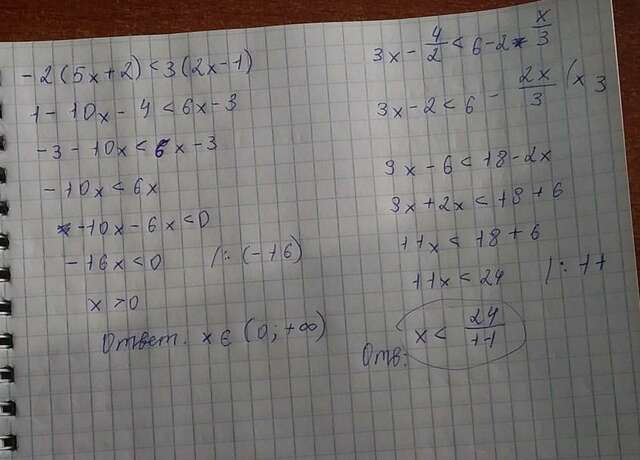 -2(5x+2)<3(2x-1)
1-10x-4<6x-3
-3-10x<6x-3
-10x<6x
-10x-6x<0
-16x<0 /:(-16)
x>0
Ответ. x∈(0;+∞)
3x-4/2<6-2*x/3
3x-2<6-2x/3 (x3
9x-6<18-2x
9x+2x<18+6
11x<18+6
11x<24 /:11
Отв: x<24/11